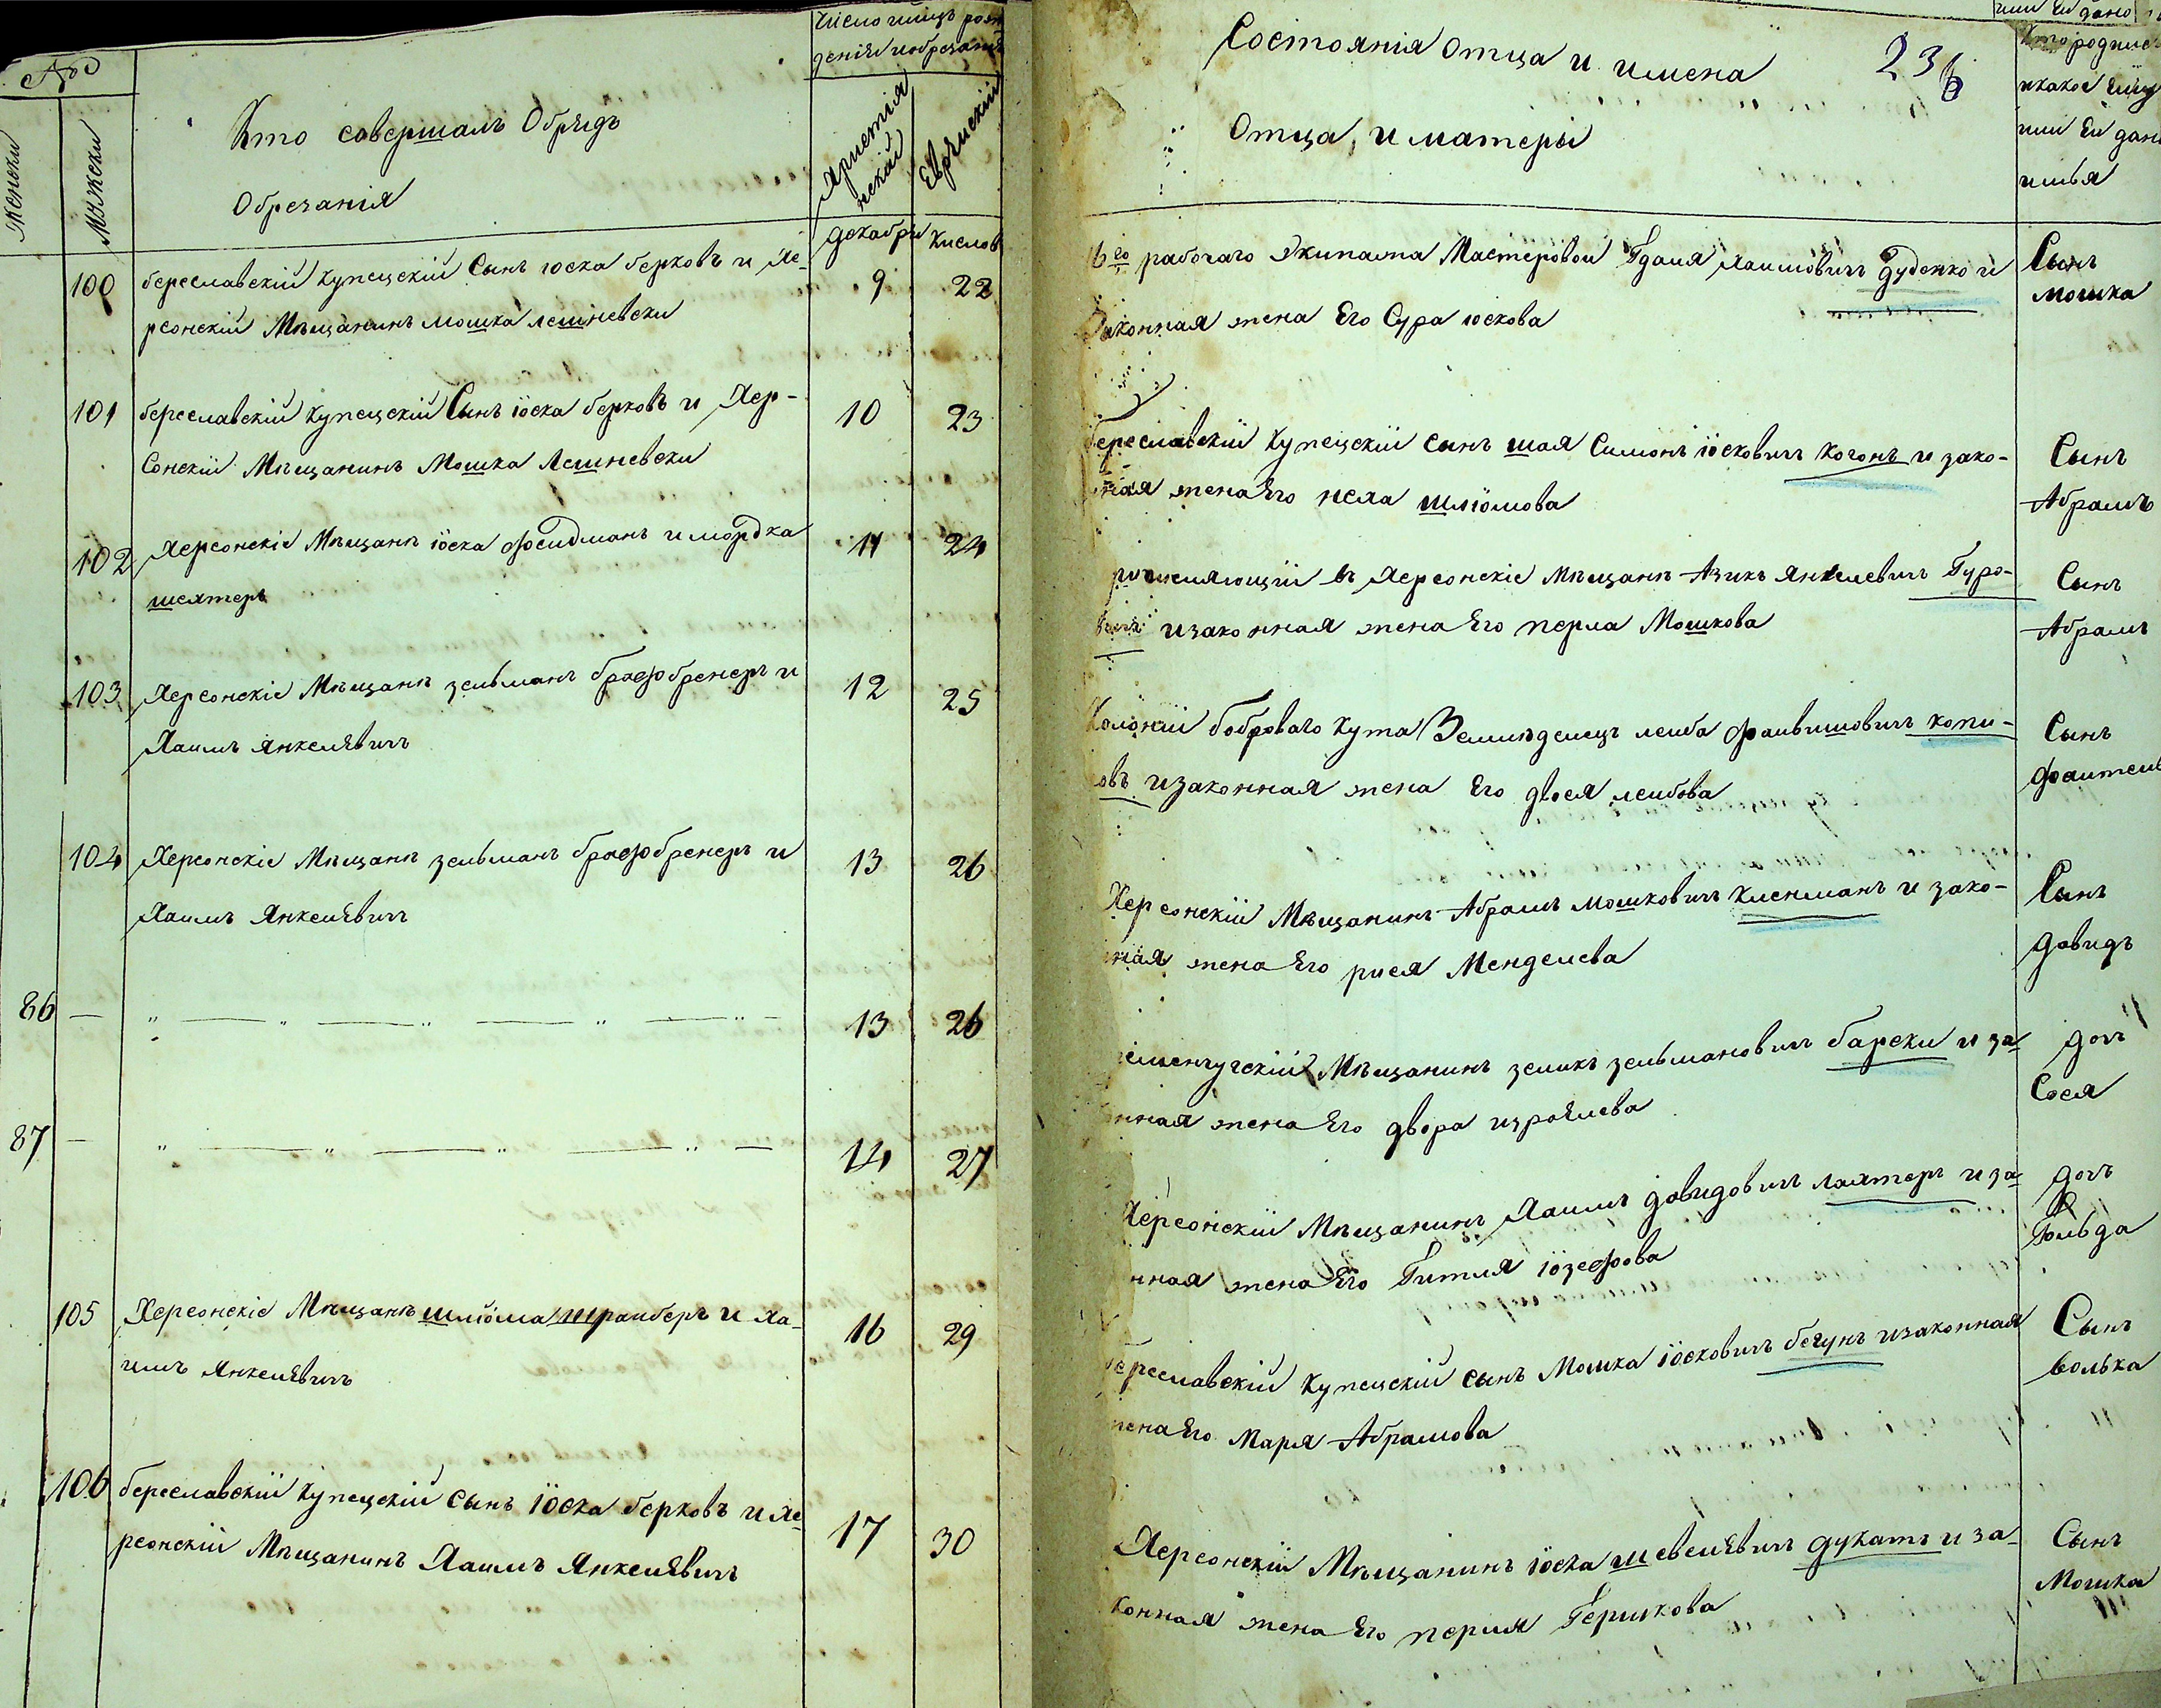 №
Женски
Мужески
Кто совершалъ Обрядъ
Обрезанія
Число и мцъ рож
денія и обрезанія
Христія
нскай
Еврейскій
декабри
Кислов
100
береславскій Купецскій Сынъ юска берковъ и Хе-
рсонскій Мѣщанинъ мошка лешневски
9
22
101
береславскій купецскій Сынъ іоска берковъ и Хер-
сонскій Мѣщанинъ Мошка Лешневски
10
23
102
Херсонскіе Мѣщанѣ іоска фельдманъ и мордка
шехтеръ
11
24
103
Херсонскіе Мѣщанѣ зельманъ брофбренеръ и
Хаимъ янкелЕвичъ
12
25
104
Херсонскіе Мѣщанѣ зельманъ брофбренеръ и
Хаимъ Янкелѣвичъ
13
26
86
13
26
87
14
27
105
Херсонскіе Мѣщанѣ шліома шрайберъ и ха-
имъ Янкелѣвичъ
16
29
106
береславскій Купецскій сынъ іоска берковъ и хе-
рсонскій Мѣщанинъ Хаимъ Янкелѣвичъ
17
30
Состоянія отца и имена
Отца, и матеры
236
или Ей дано
Кто родился
и какое Ему
или Ей дано
имья
16го рабочаго Экипажа Мастеровой Гдаля хаимовичъ дуденко и
Законная жена Его Сура юскова
Сынъ
мошка
береславскій Купецскій сынъ шая Симонъ іосковичъ Когонъ и зако-
ная жена Его неха шліомова
Сынъ
Абрамъ
ричисляющій въ Херсонскіе мѣщанѣ Азикъ янкелевичъ Гуро-
вичъ и законная жена Его перла Мошкова
Сынъ
Абрамъ
Колоніи боброваго кута Земледелецъ лейба файвишовичъ копи-
овъ и законная жена Его двося лейбова
Сынъ
фаител
Херсонскій Мѣщанинъ Абрамъ мошковичъ клейманъ и зако-
ная жена Его рися Менделева
Сынъ
давидъ
еменчугскій Мѣщанинъ зеликъ зельмановичъ барски и за-
нная жена Его двора израЕлева
дочъ
Сося
Херсонскій Мѣщанинъ Хаимъ Давидовичъ лахтеръ и за-
нная жена Его Гитля іозефова
дочъ
Гольда
береславскій Купецскій сынъ Мошка іосковичъ бегунъ и законная
жена Его Маря Абрамова
Сынъ
волька
Херсонскій Мѣщанинъ іоска шевелѣвичъ дукатъ и за-
конная жена Его перля Гершкова
Сынъ
Мошка